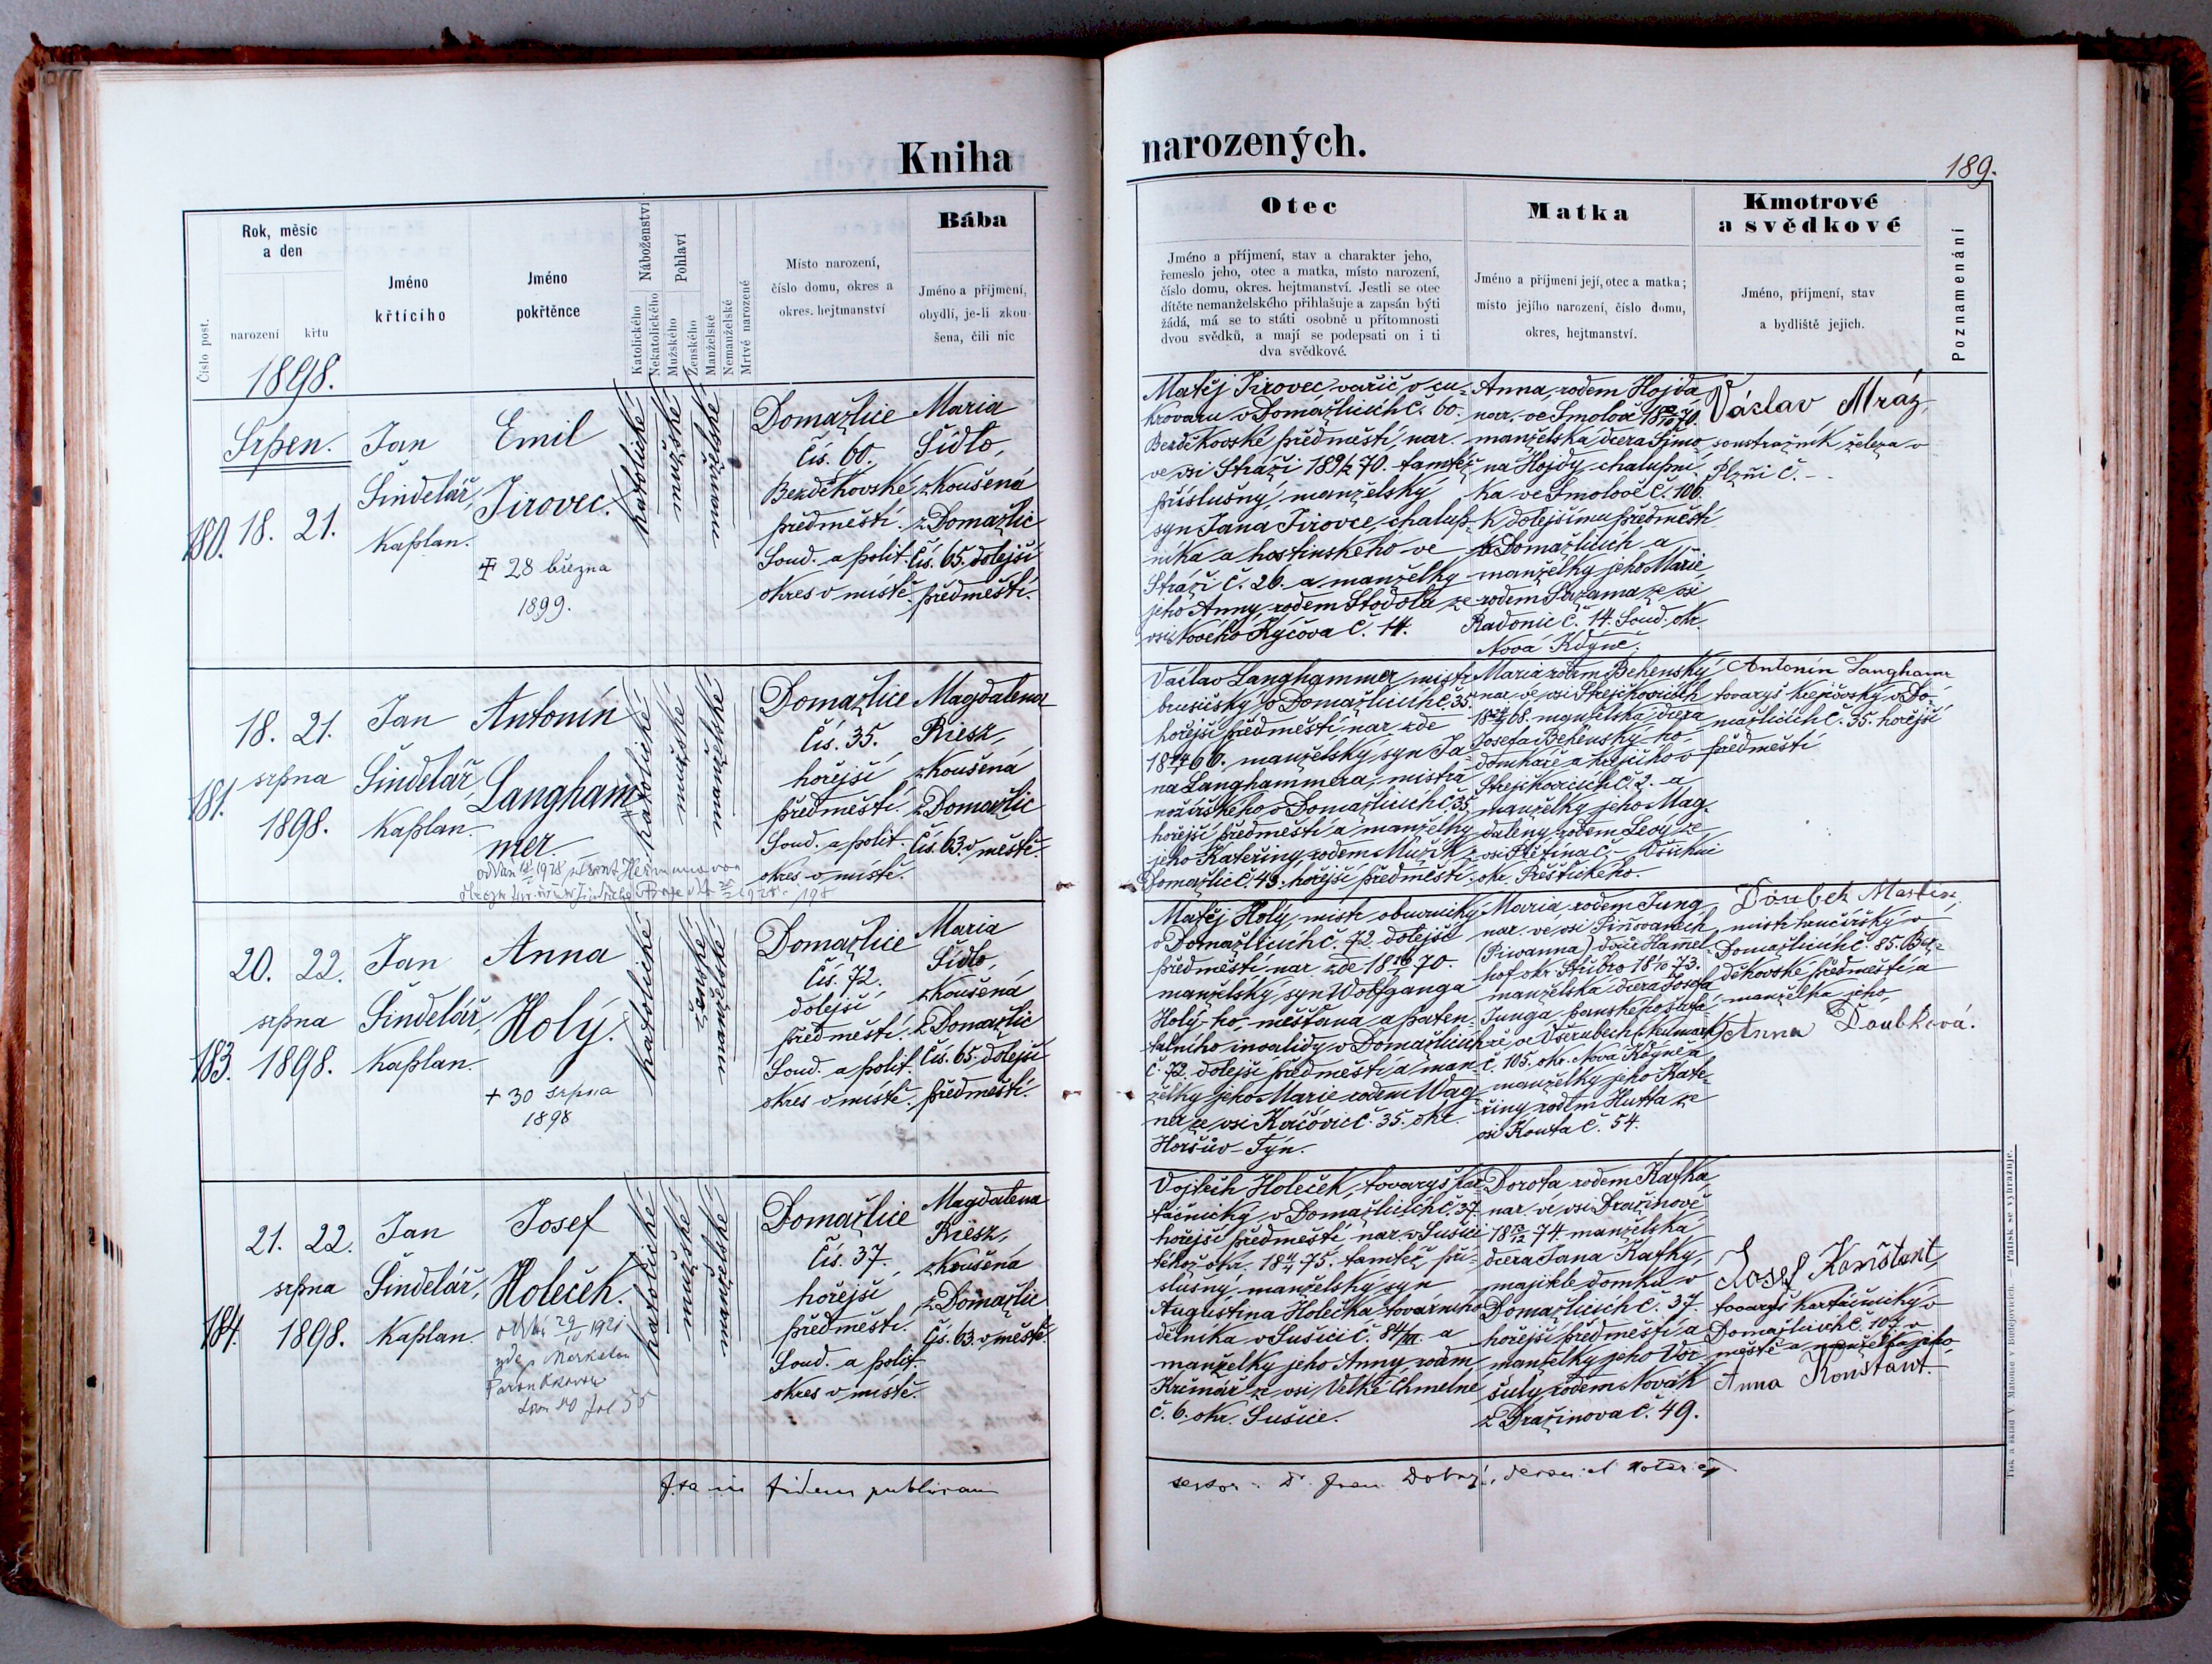 Kniha
narozených.
189.
Číslo post.
Rok, měsíc
a den
narození
křtu
1898.
Jméno
křtícího
Jméno
pokřtěnce
Náboženství
Katolického
Nekatolického
Pohlaví
Mužského
Ženského
Manželské
Nemanželské
Mrtvě narozené
Místo narození,
číslo domu, okres a
okres. hejtmanství
Bába
Jméno a příjmení,
obydlí, je-li zkou-
šena, čili nic
Otec
Jméno a příjmení, stav a charakter jeho,
řemeslo jeho, otec a matka, místo narození,
číslo domu, okres. hejtmanství. Jestli se otec
dítěte nemanželského přihlašuje a zapsán býti
žádá, má se to státi osobně u přítomnosti
dvou svědkü, a mají se podepsati on i ti
dva svědkové.
Matka
Jméno a příjmení její, otec a matka;
místo jejího narození, číslo domu,
okres, hejtmanství.
Kmotrové
a svědkové
Jméno, příjmení, stav
a bydliště jejich.
Poznamenání
Srpen.
180. 18. 21.
Jan
Šindelář,
kaplan.
Emil
Jirovec.
28 března
1899.
katolické
mužské
manželské
Domažlice
čís. 60.
Bezděkovské
předměstí.
Soud. a polit.
okres v místě.
Maria
Šídlo,
zkoušená
z Domažlic
čís. 65. dolejší
předměstí.
Matěj Jirovec, vařič v cu-
krovaru v Domažlicích č. 60.
Bezděkovské předměstí, nar.
ve vsi Stráži 70. tamtéž
příslušný, manželský
syn Jana Jirovce, chalup-
níka a hostinského ve
Stráži č. 26. a manželky
jeho Anny, rodem Stodola ze
vsi Nového Kýčova č. 14.
Anna, rodem Hojda,
nar. ve Smolově
manželská dcera Šimo-
na Hojdy, chalupní-
ka ve Smolově č. 106.
k dolejšímu předměstí
v Domažlicích a
manželky jeho Marie
rodem Sazama ze vsi
Radonic č. 14. Soud. okr.
Nová Kdyně.
Václav Mráz,
soustružník železa v
Plzni č. -
181.
18. 21.
srpna
1898.
Jan
Šindelář,
kaplan.
Antonín
Langham-
mer.
katolické
mužské
manželské
Domažlice
čís. 35.
hořejší
předměstí.
Soud. a polit.
okres v místě.
Magdalena
Riesz,
zkoušená
z Domažlic
čís. 63. v městě.
Václav Langhammer, mistr
brusičský v Domažlicích č. 35.
hořejší předměstí, nar. zde
66. manželský syn Ja-
na Langhammera, mistra
nožířského v Domažlicích č. 35
hořejší předměstí a manželky
jeho Kateřiny, rodem Mužík z
Domažlic č. 43. hořejší předměstí.
Maria rodem Behenský,
nar. ve vsi Strejčkovicích
68. manželská dcera
Josefa Behenský-ho,
domkáře a krejčího v
Strejčkovicích č. 2. a
manželky jeho Mag-
daleny, rodem Levý ze
okr. Přeštického.
Antonín Langhamr
tovaryš krejčovský v Do-
mažlicích č. 35. hořejší
předměstí
183.
20. 22.
srpna
1898.
Jan
Šindelář,
kaplan.
Anna
Holý.
+ 30 srpna
1898
katolické
ženské
manželské
Domažlice
čís. 72.
dolejší
předměstí.
Soud. a polit.
okres v místě.
Maria
Šídlo,
zkoušená
z Domažlic
čís. 65. dolejší
předměstí.
Matěj Holý, mistr obuvnický
v Domažlicích č. 72. dolejší
předměstí, nar. zde 70.
manželský syn Wolfganga
Holý-ho, měšťana a paten-
talního invalidy v Domažlicích
č. 72. dolejší předměstí a man-
želky jeho Marie rodem Wag-
ner ze vsi č. 35. okr.
Horšův-Týn.
Maria rodem Jung,
nar. ve vsi Piňovanech
(Piwanna) dvůr Hamel-
hof okr. Stříbro 73.
manželská dcera Josefa
Junga, panského šafá-
ře ve Všerubech (Neumark)
č. 105. okr. Nová Kdyně a
manželky jeho Kate-
řiny rodem Hutta ze
vsi Kouta č. 54.
Doubek Martin,
mistr hrnčířský v
Domažlicích č. 85. Bez-
děkovské předměstí a
manželka jeho
Anna Doubková.
184.
21. 22.
srpna
1898.
Jan
Šindelář,
kaplan
Josef
Holeček.
katolické
mužské
manželské
Domažlice
čís. 37.
hořejší
předměstí.
Soud. a polit.
okres v místě.
Magdalena
Riesz,
zkoušená
z Domažlic
čís. 63. v městě
Vojtěch Holeček, tovaryš kar-
táčnický v Domažlicích č. 37
hořejší předměstí, nar. v Sušici
téhož okr. 75. tamtéž pří-
slušný, manželský syn
Augustina Holečka, továrního
dělníka v Sušici č. 84/III. a
manželky jeho Anny rodem
Krčmář ze vsi Velké Chmelné
č. 6. okr. Sušice.
Dorota rodem Kafka
nar. ve vsi Dražinově
74. manželská
dcera Jana Kafky,
majitele domku v
Domažlicích č. 37.
hořejší předměstí a
manželky jeho Vor-
šuly, rodem Novák
z Dražinova č. 49.
Josef Konštant,
tovaryš kartáčnický v
Domažlicích č. 107. v
městě a manželka jeho
Anna Konstant.
fidem publicam
Tisk a sklad V. Matouše v Budějovicích. — Patisk se vyhrazuje.